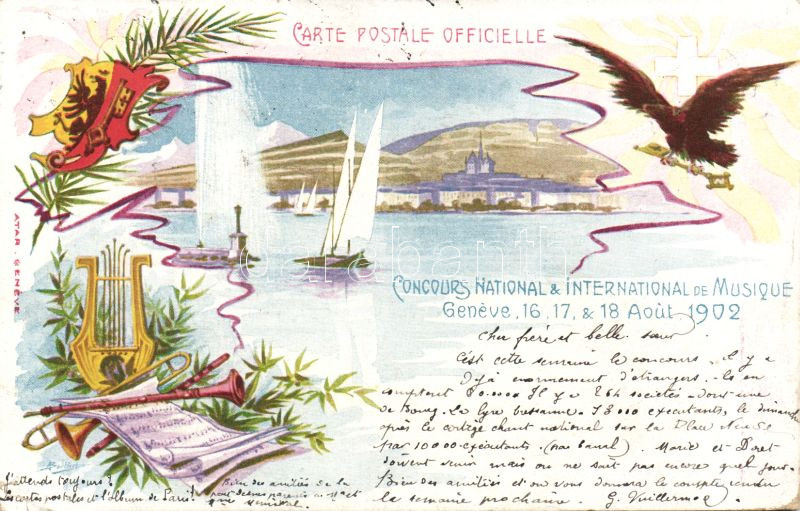 CARTE POSTALE OFFICIELLE
ATAR. GENÈVE
CONCOURS NATIONAL & INTERNATIONAL DE MUSIQUE
Genève, 16, 17, & 18 Août 1902
Cher frère et belle sœur
C'est cette semaine le concours. Il y a
déjà énormément d'étrangers. Ils en
comptent 80.000 Il y a 264 sociétés dont une
de Bourg. La Lyre bressanne. 13000 exécutants, le dimanche
après le cortège chant national sur la Place Neuve
par 10000 exécutants. Marie et
doivent venir mais on ne sait pas encore quel jour.
Bien des amitiés et on vous donnera le compte rendu
la semaine prochaine. G. Vuillermoz
J'attends toujours?
Les cartes postales et l'Album de Paris!
Bien des amitiés de la
part de